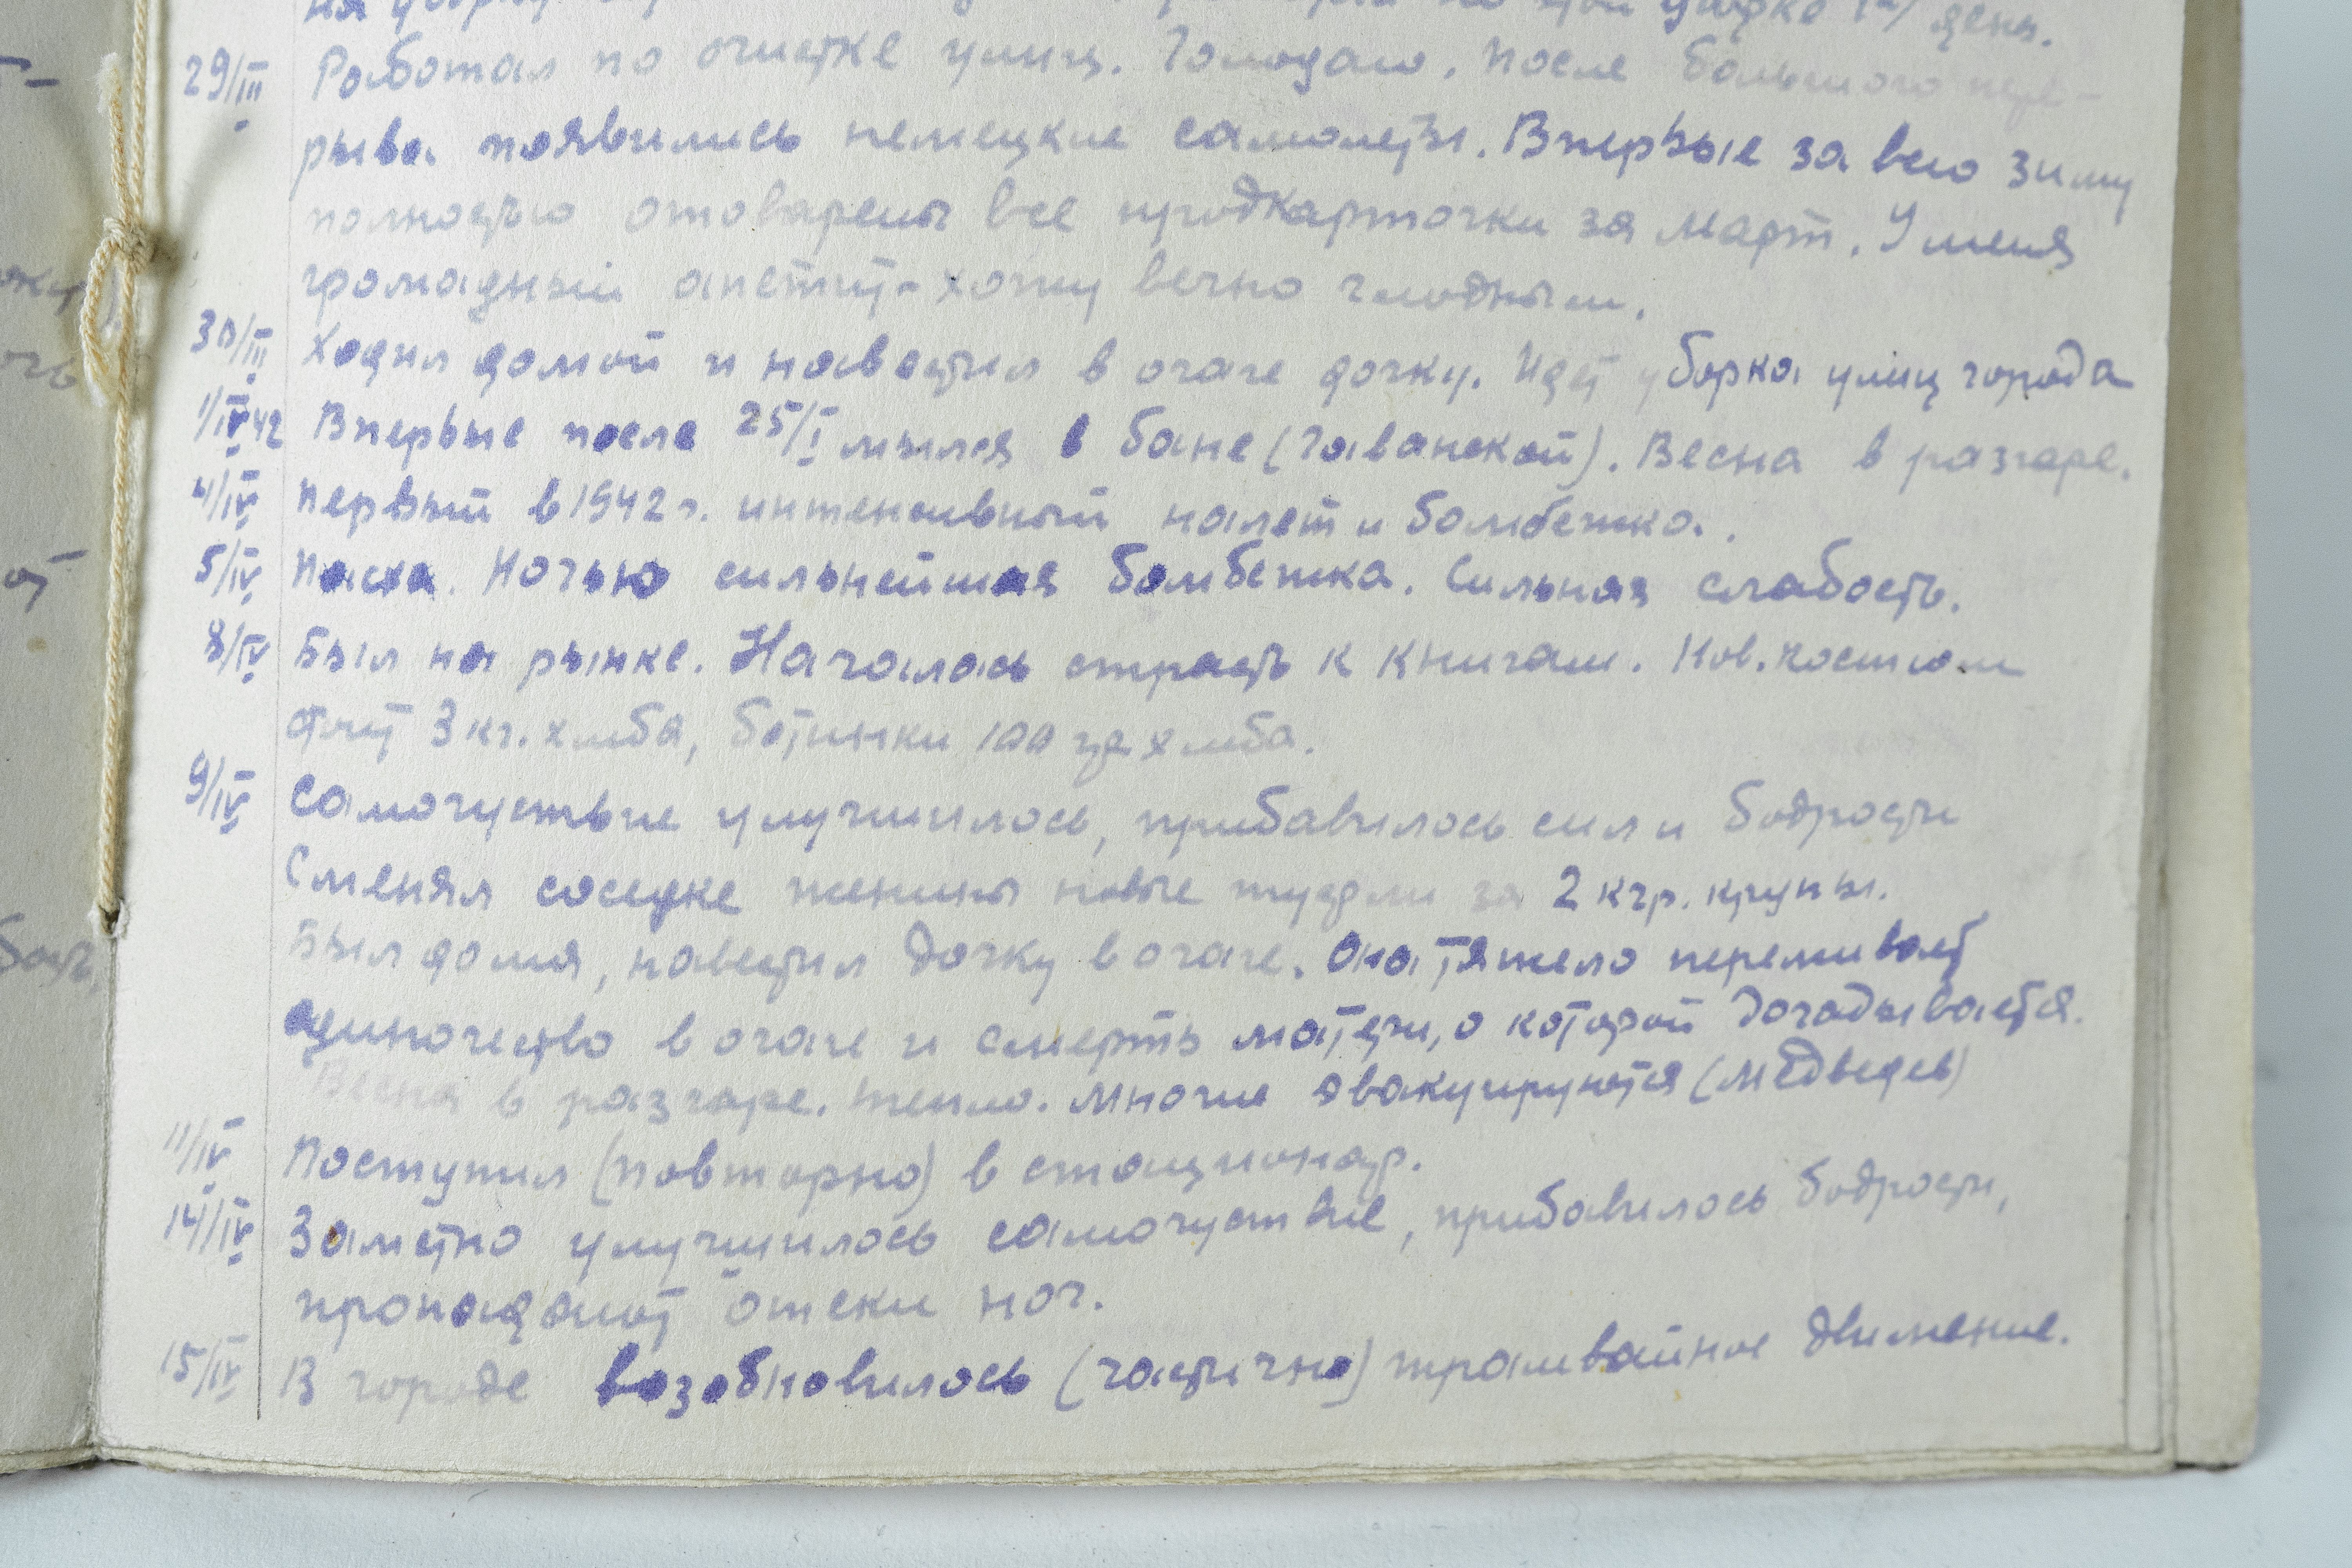 уборку день.
29/III Работал по очистке улиц. Голодаю. После большого пере-
рыва появились немецкие самолеты. Впервые за всю зиму
полностью отоварены все продкарточки за март. У меня
громадный апетит - хожу вечно голодным.
30/III Ходил домой и навестил в очаге дочку. Идет уборка улиц города
1/IV 42 Впервые после 25/I мылся в бане (Гаванской). Весна в разгаре.
4/IV Первый в 1942 г. интенсивный налет и бомбежка.
5/IV Пасха. Ночью сильнейшая бомбежка. Сильная слабость.
8/IV Был на рынке. Началась страсть к книгам. Нов. костюм
стоит 3 кг. хлеба, ботинки 100 гр хлеба.
9/IV Самочуствие улучшилось, прибавилось сил и бодрости
Сменял соседке женины новые туфли за 2 кгр. крупы.
Был дома, навестил дочку в очаге. Она тяжело переживает
одиночество в очаге и смерть матери, о которой догадывается.
Весна в разгаре. Тепло. Многие эвакуируются (Медведев)
11/IV Поступил (повторно) в стационар.
14/IV Заметно улучшилось самочуствие, прибавилось бодрости,
пропадают отеки ног.
15/IV В городе возобновилось (частично) трамвайное движение.